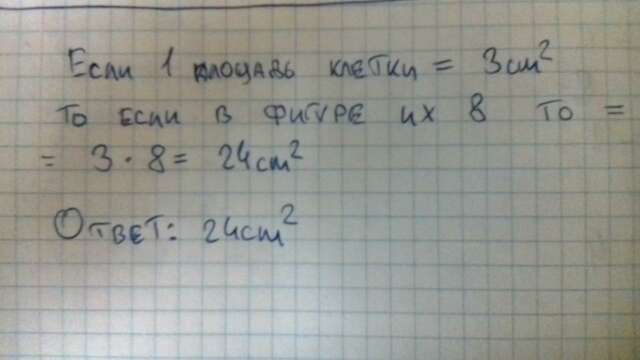 Если 1 площадь клетки = 3см²
То если в фигуре их 8 то =
= 3 · 8 = 24см²
Ответ: 24см²